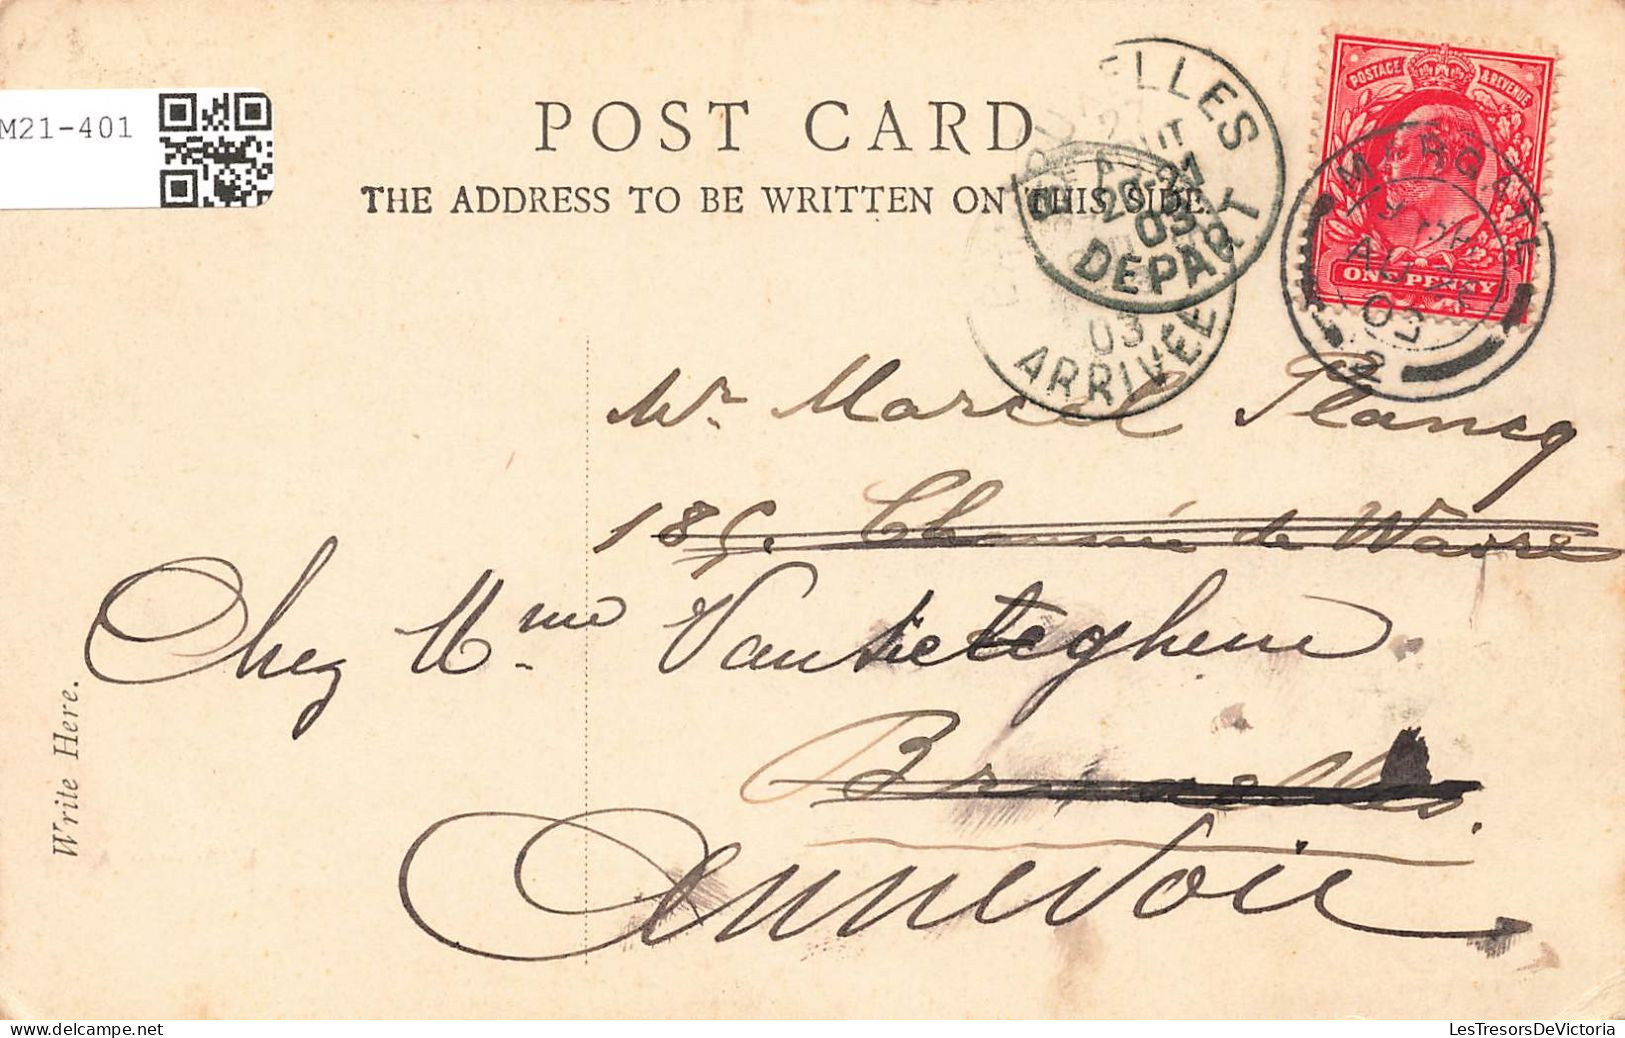 M21-401
POST CARD
THE ADDRESS TO BE WRITTEN ON THIS SIDE.
BRUXELLES
AOUT
20-21
03
DEPART
03
ARRIVEE
POSTAGE & REVENUE
ONE PENNY
MARGATE
AU
03
2
Mr. Marcel Plancq
185. Chaussée de Wavre
Chez Mme
Bruxelles.
Annevoie
Write Here.
LesTresorsDeVictoria
delcampe.net